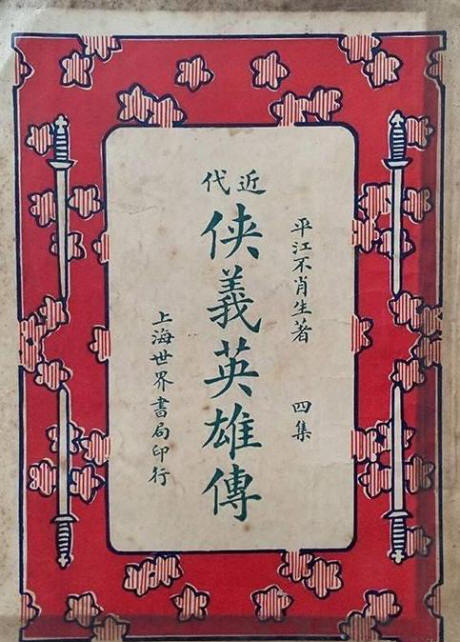 近代
俠義英雄傳
平江不肖生著 四集
上海世界書局印行